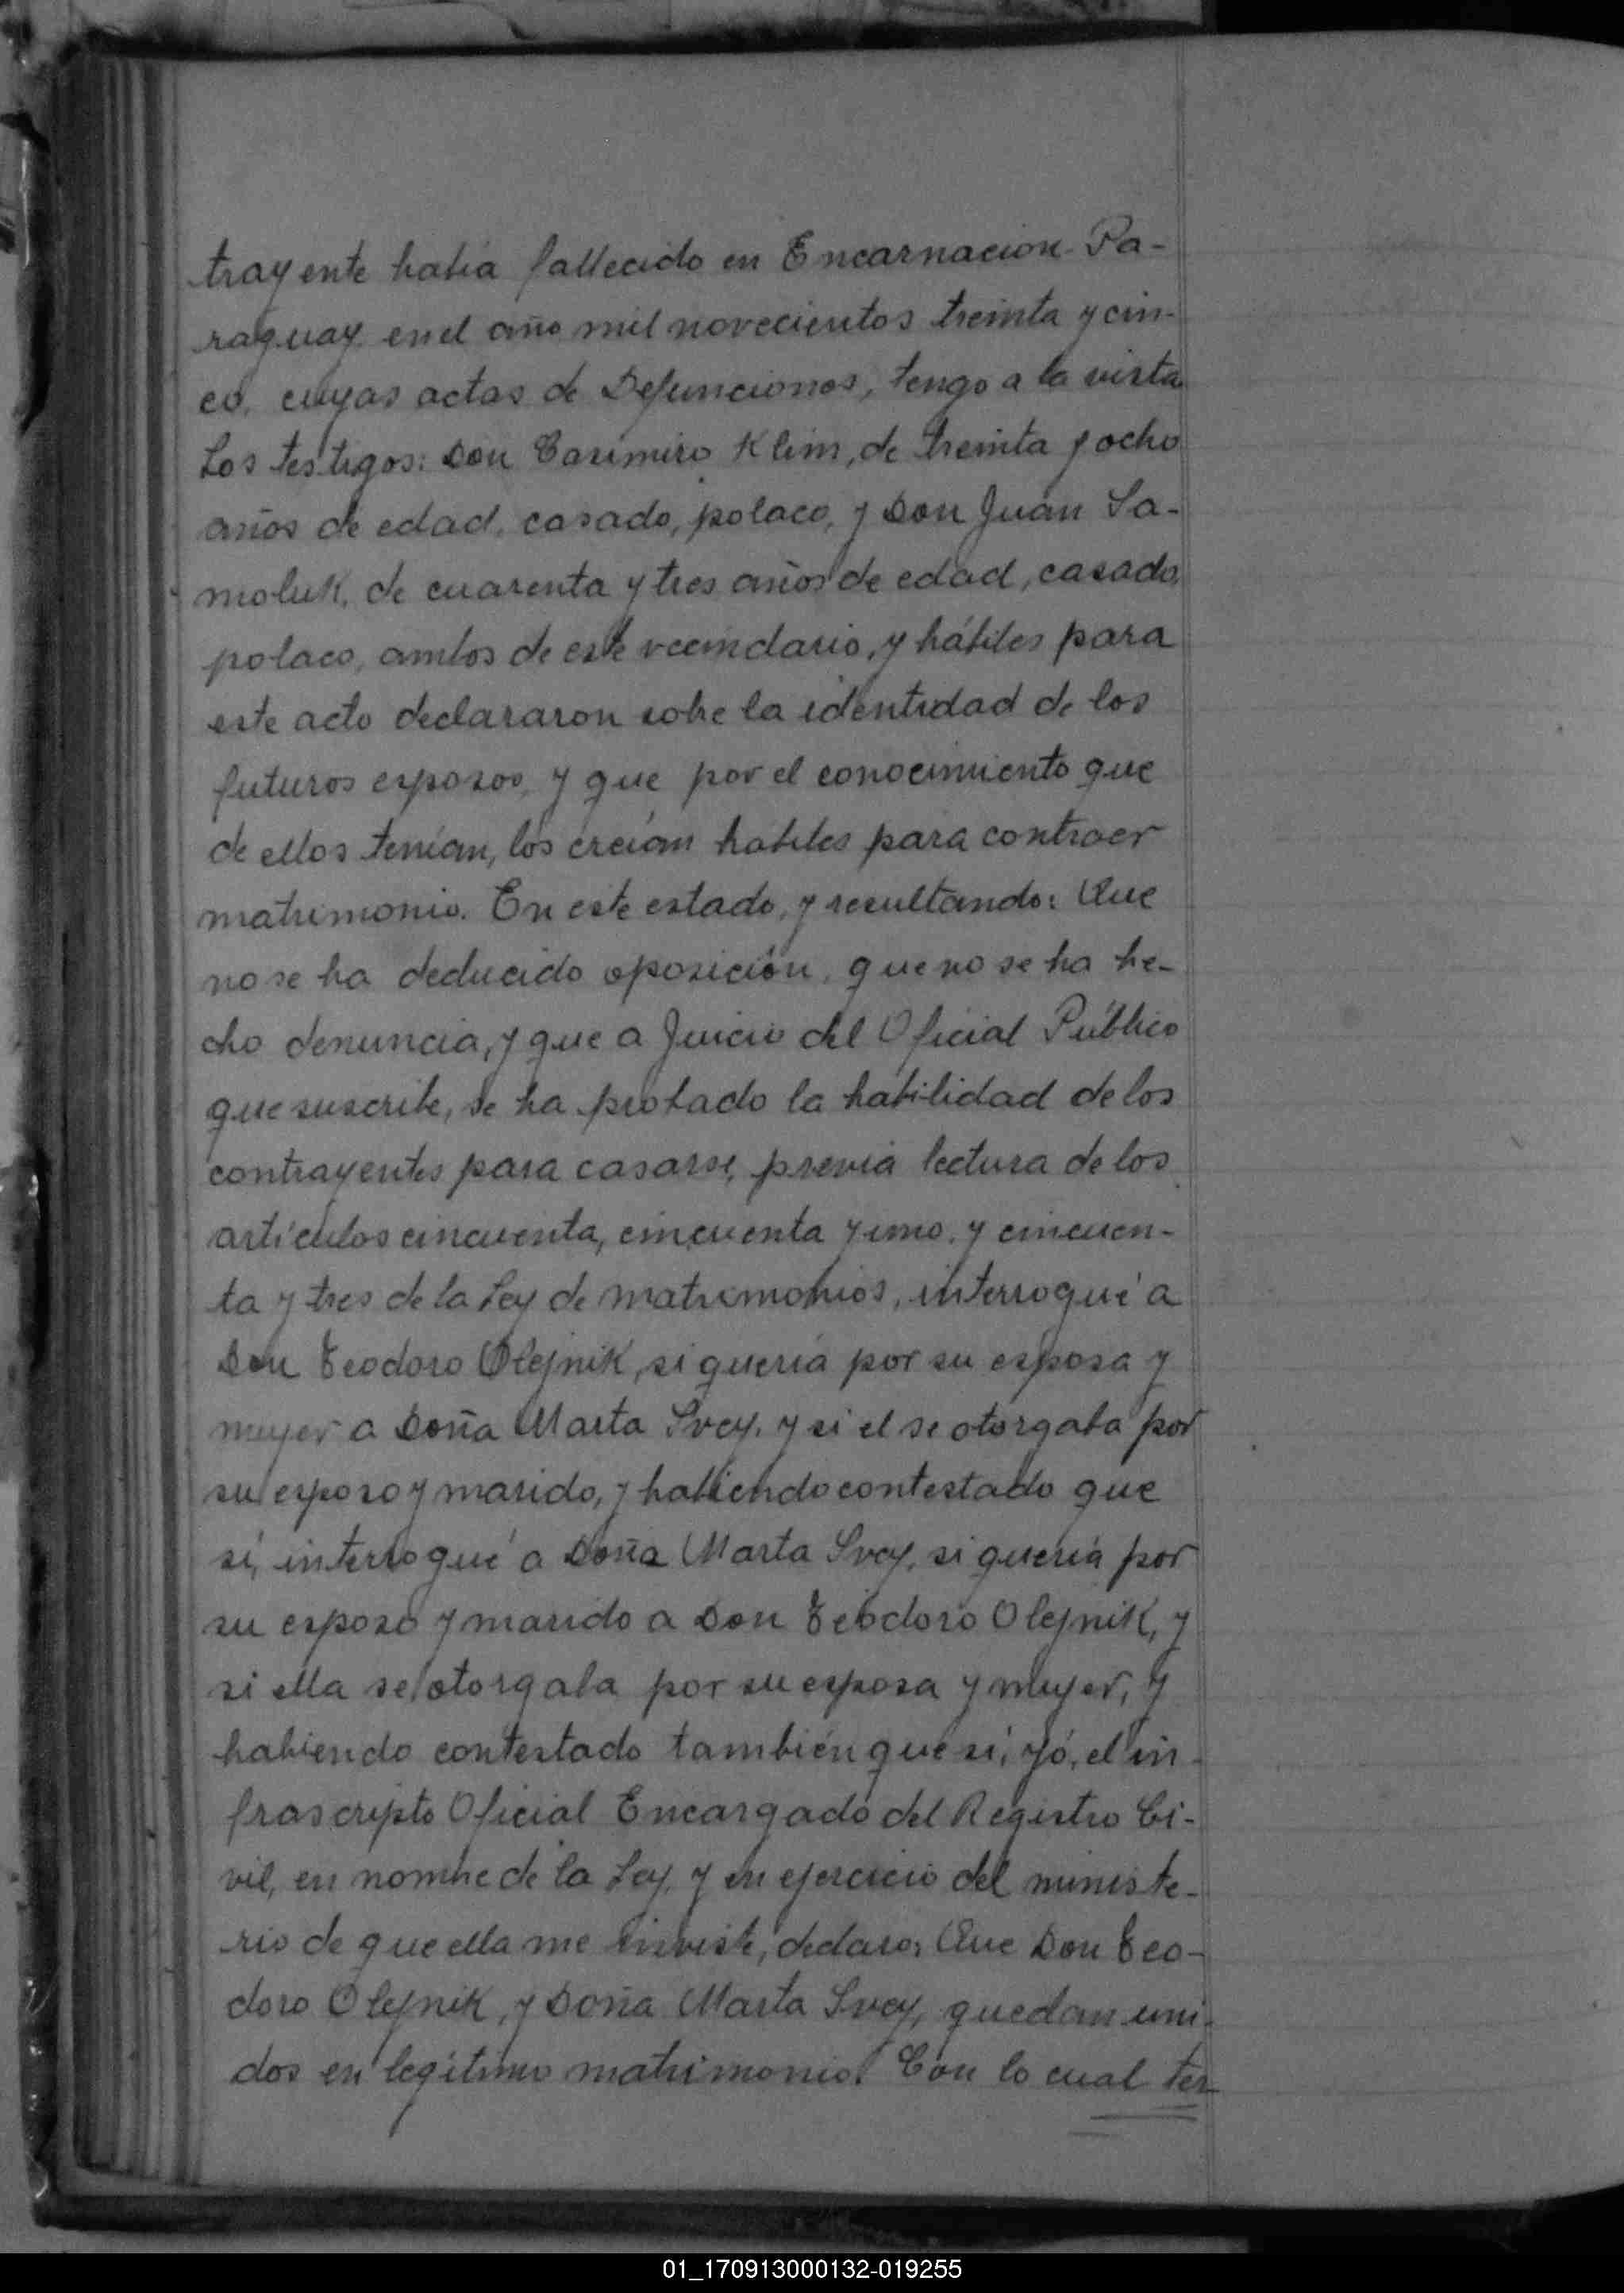 trayente había fallecido en Encarnacion-Pa-
raguay en el año mil novecientos treinta y cin-
co, cuyas actas de Defunciones, tengo a la vista
Los testigos: Don Casimiro Klim, de treinta y ocho
años de edad, casado, polaco, y Don Juan Sa-
moluk, de cuarenta y tres años de edad, casado,
polaco, ambos de este vecindario, y hábiles para
este acto declararon sobre la identidad de los
futuros esposos, y que por el conocimiento que
de ellos tenían, los creían habiles para contraer
matrimonio. En este estado, y resultando: Que
no se ha deducido oposición, que no se ha he-
cho denuncia, y que a Juicio del Oficial Público
que suscribe, se ha probado la habilidad de los
contrayentes para casarse, previa lectura de los
artículos cincuenta, cincuenta y uno, y cincuen-
ta y tres de la Ley de matrimonios, interrogué a
Don Teodoro Olejnik, si quería por su esposa y
mujer a Doña Marta Svey, y si el se otorgaba por
su esposo y marido, y habiendo contestado que
sí, interrogué a Doña Marta Svey, si quería por
su esposo y marido a Don Teodoro Olejnik, y
si ella se otorgaba por su esposa y mujer, y
habiendo contestado también que sí, yó, el in-
frascripto Oficial Encargado del Registro Ci-
vil, en nombre de la Ley, y en ejercicio del ministe-
rio de que ella me inviste, declaro: Que Don Teo-
doro Olejnik, y Doña Marta Svey, quedan uni-
dos en legítimo matrimonio. Con lo cual ter
01_170913000132-019255